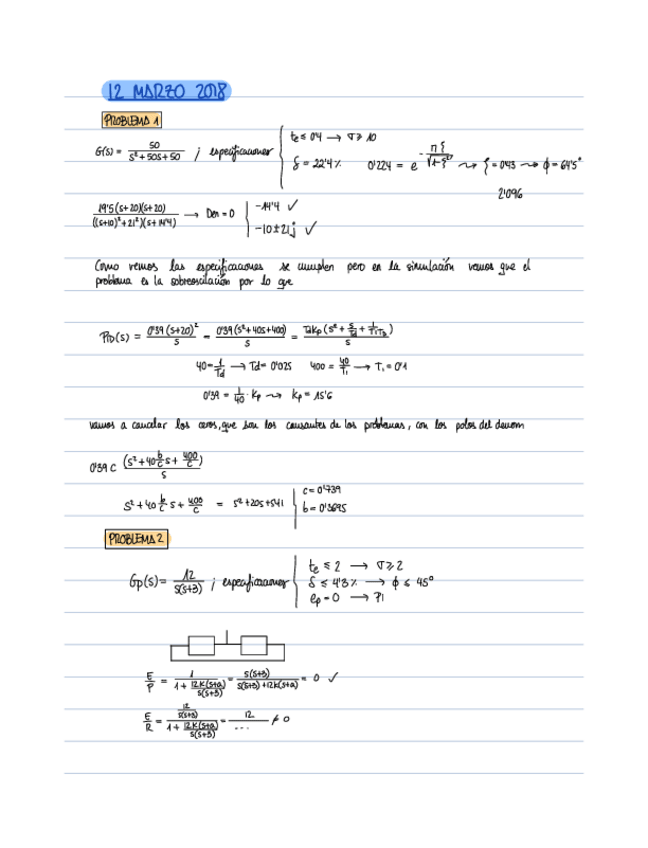 12 MARZO 2018
PROBLEMA 1
G(s) = 50 / (s² + 50s + 50) ; especificaciones
te ≤ 0'4 → σ ≥ 10
δ = 22'4% 0'224 = e^(-πξ/√(1-ξ²)) ⤳ ξ = 0'43 ⤳ φ = 64'5°
2'096
19'5(s+20)(s+20) / ((s+10)² + 21²)(s+14'4) → Den = 0
-14'4 ✓
-10 ± 21j ✓
Como vemos las especificaciones se cumplen pero en la simulación vemos que el
problema es la sobreoscilación por lo que
PID(s) = 0'39(s+20)² / s = 0'39(s²+40s+400) / s = TdKp(s² + s/Td + 1/TiTd) / s
40 = 1/Td → Td = 0'025 400 = 40/Ti → Ti = 0'1
0'39 = 1/40 · Kp ⤳ Kp = 15'6
vamos a cancelar los ceros, que son los causantes de los problemas, con los polos del denom
0'39 C (s² + 40 b/c s + 400/c) / s
s² + 40 b/c s + 400/c = s² + 20s + 541
c = 0'739
b = 0'3695
PROBLEMA 2
Gp(s) = 12 / s(s+3) ; especificaciones
te ≤ 2 → σ ≥ 2
δ ≤ 4'3% → φ ≤ 45°
ep = 0 → PI
E/P = 1 / (1 + 12K(s+a) / s(s+3)) = s(s+3) / (s(s+3) + 12K(s+a)) = 0 ✓
E/R = (12 / s(s+3)) / (1 + 12K(s+a) / s(s+3)) = 12 / ... ≠ 0